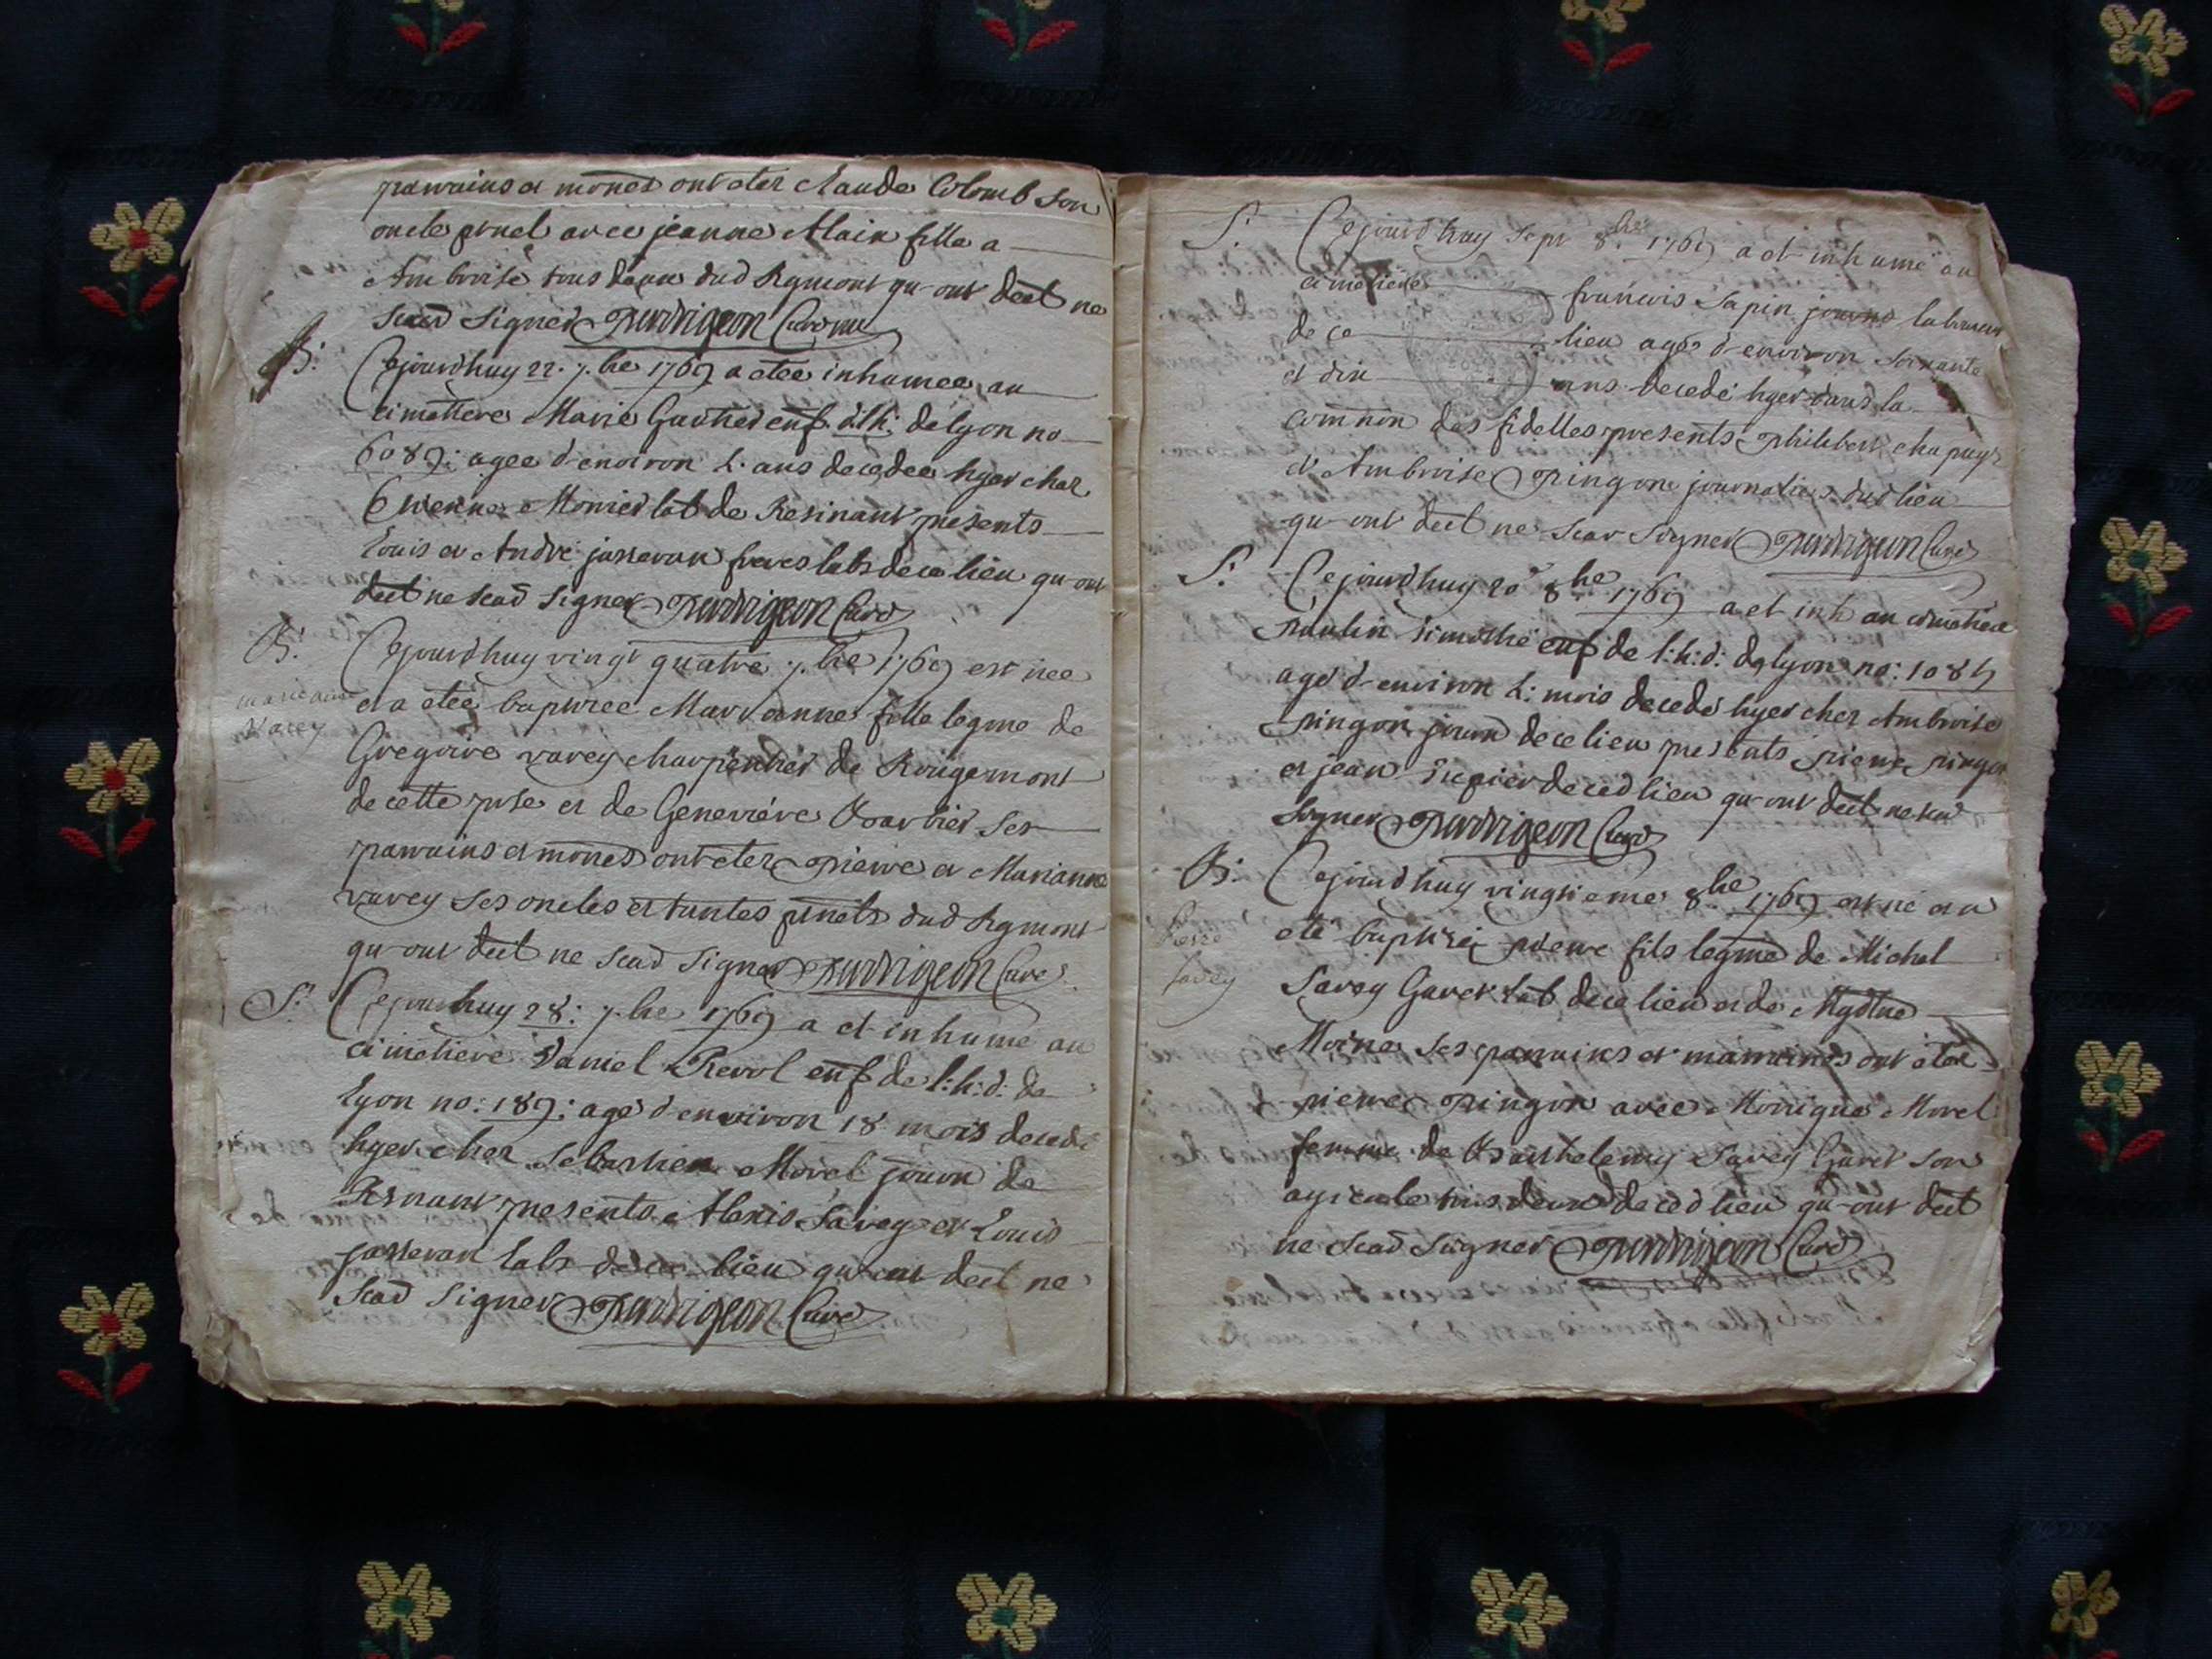 parrains et mones ont eter Claude Colomb son
oncle prnel avec jeanne Alain fille a
Ambroise tous deux dud Rgmont qu-ont deet ne
scad signer Perdrigeon Curé
Cejourdhuy 22. 7.bre 1769 a etee inhumee au
cimettiere Marie Gautier enf d.lh: de lyon no
6089: agee d'environ 2. ans decedee hyer chez
Etienne Monier lab de Resinant presents
Louis et André josseran freres labs de ce lieu qu-ont
deet ne scad signer Perdrigeon Curé
B:
marieanne
Varey
Cejourdhuy vingt quatre 7.bre 1769 est nee
et a etée baptisee Mari anne fille legme de
Gregoire varey charpentier de Rougemont
de cette prse et de Geneviéve Barbier ses
parrains et mones ont eter pierre et Marianne
varey ses oncles et tantes prnels dud Rgmont
qu-ont deet ne scad signer Perdrigeon Curé
S:
Cejourdhuy 28: 7.bre 1769 a et inhumé au
cimetiere Daniel Revol enf de l:h:d: de
Lyon no: 189: agé d'environ 18 mois decedé
hyer chez Sebastien Morel journ de
Resnant presents Alexis Savey et Louis
josseran labs de ce lieu qu-ont deet ne
scad signer Perdrigeon Curé
S:
Cejourdhuy sept 8.bre 1769 a et inhumé au
cimetiere francois Sapin laboureur
de ce lieu agé d'environ soixante
et dix ans decedé hyer dans la
commnon des fidelles presents philibert chapuy
et Ambroise pingon journaliers dud lieu
qu-ont deet ne scav signer Perdrigeon Curé
S:
Cejourdhuy 20 8.bre 1769 a et inh au cimetiere
paulin timothé enf de l:h:d: de lyon no: 1084
agé d'environ 2: mois decedé hyer chez Ambroise
pingon journ de ce lieu presents pierre pingon
et jean de ced lieu qu-ont deet ne scad
signer Perdrigeon Curé
B:
Pierre
Savey
Cejourdhuy vingtieme 8.bre 1769 est né et a
eté baptisé pierre fils legme de Michel
Savey Garet lab de ce lieu et de Mgdlne
Moine ses parrains et marraines ont eter
pierre pingon avec Monique Morel
femme de Barthelemy Savey Garet son
ayieule tous deux de ced lieu qu-ont deet
ne scad signer Perdrigeon Curé